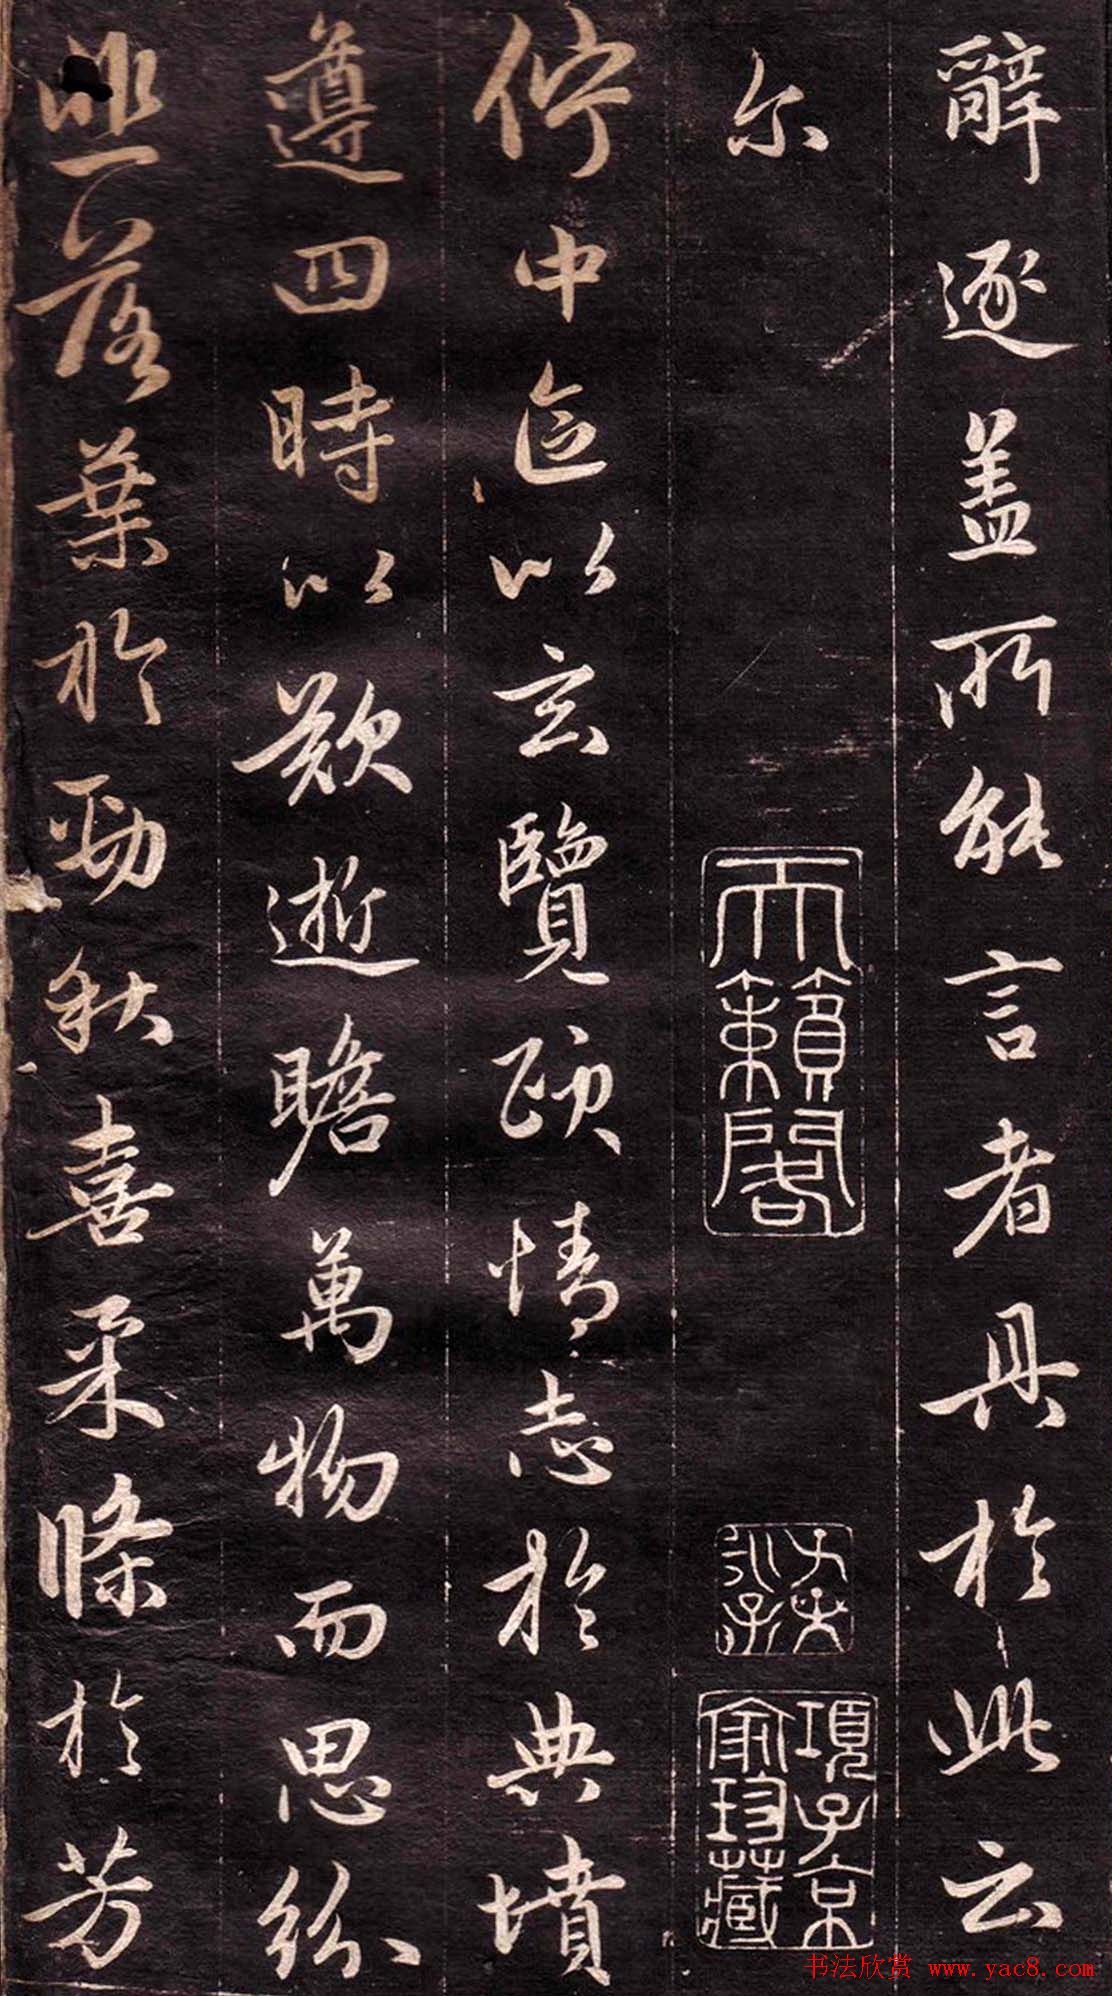 辭逐蓋所能言者具於此云
尔
天籟閣
項子京家珍藏
佇中區以玄覽頤情志於典墳
遵四時以歎逝瞻萬物而思紛
悲落葉於勁秋喜柔條於芳
书法欣赏 www.yac8.com